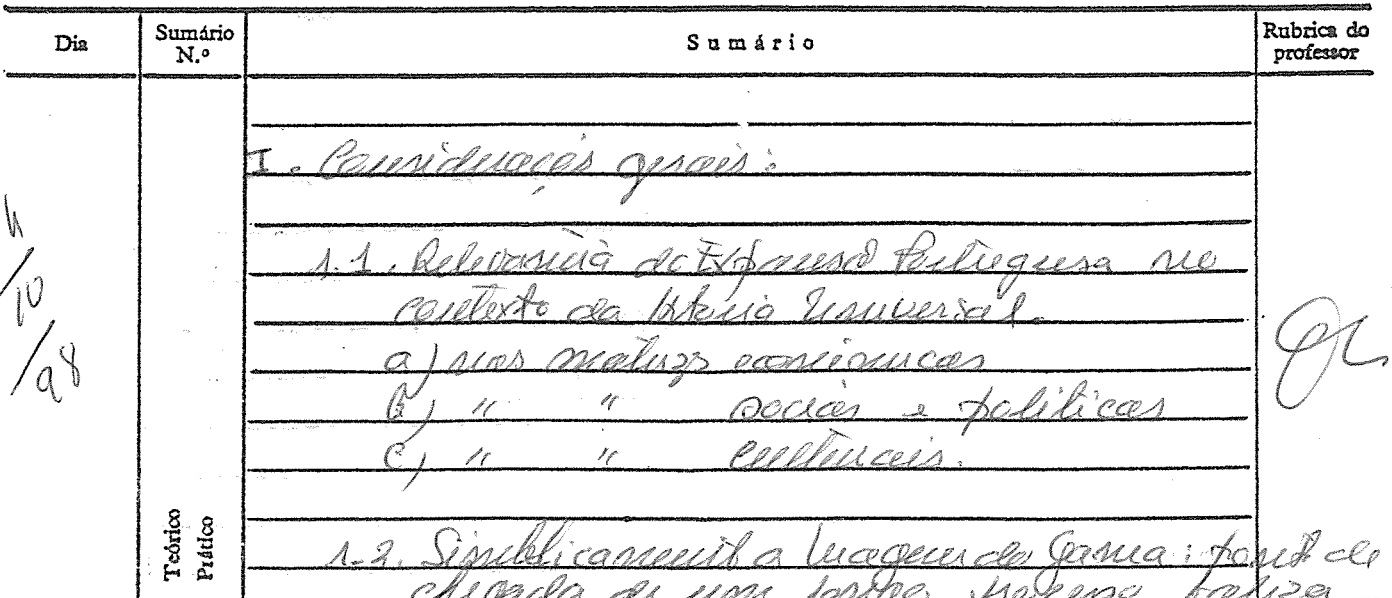 Dia Sumário N.º Sumário Rubrica do professor
I. Considerações gerais:
1.1. Relevância da Expansão Portuguesa no
contexto da História Universal.
a) nas matrizes económicas
b) " " sociais e políticas
c) " " culturais.
/10/98
Teórico
Prático
1.2. Simbolicamente a viagem do Gama: ponto de
chegada de um longo